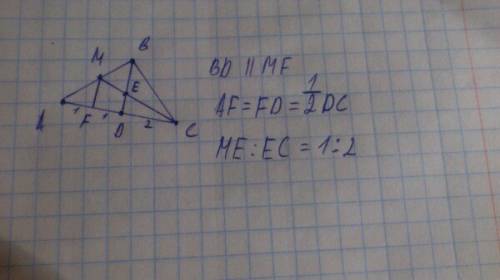 B
M
E
A
1
F
1
D
2
C
BD || MF
AF = FD = 1/2 DC
ME : EC = 1 : 2